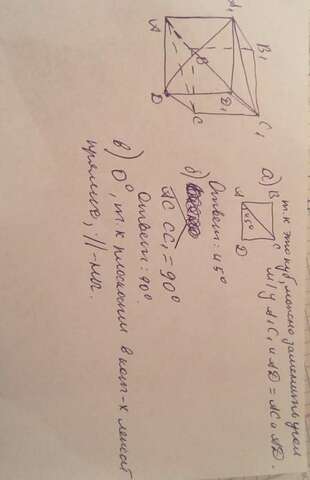 A A₁
B B₁
D D₁
C C₁
а) т.к это куб, можно заменить углом
м/у A₁C₁ и AD = AC и AD.
B C
A 45° D
Ответ: 45°
б)
AC CC₁ = 90°
Ответ: 90°.
в) 0°, т.к плоскости в кот-х лежат
прямые, || -мы.